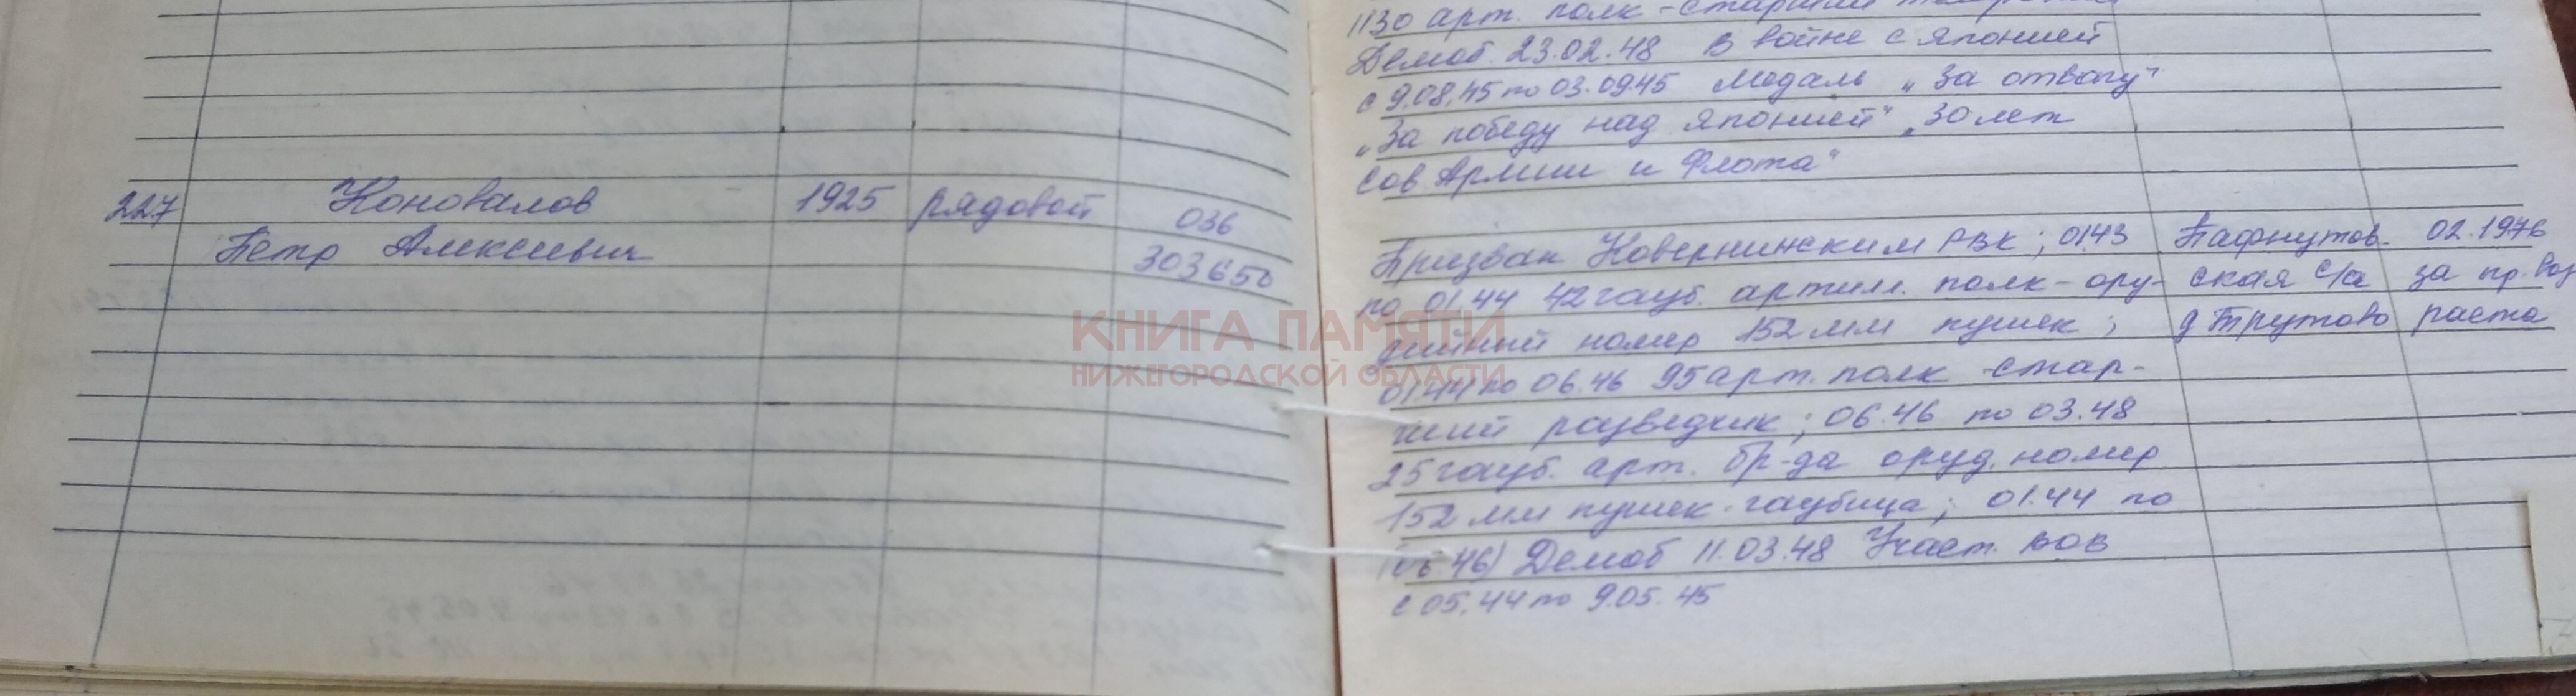 1130 арт. полк - старший
Демоб. 23.02.48 В войне с Японией
с 9.08.45 по 03.09.45 Медаль „За отвагу"
„За победу над Японией" „30 лет
Сов Армии и Флота"
227 Коновалов 1925 рядовой 036
Петр Алексеевич 303650
Призван Ковернинским РВК; 01.43 Пафнутов- 02.1976
по 01.44 42 гауб. артилл. полк - ору- ская с/а за пр. воз
дийный номер 152 мм пушек; д Трутово раста
01.44 по 06.46 95 арт. полк стар-
ший разведчик; 06.46 по 03.48
25 гауб. арт. бр-да оруд. номер
152 мм пушек-гаубица; 01.44 по
(06 46) Демоб 11.03.48 Участ. ВОВ
с 05.44 по 9.05.45
КНИГА ПАМЯТИ
НИЖЕГОРОДСКОЙ ОБЛАСТИ